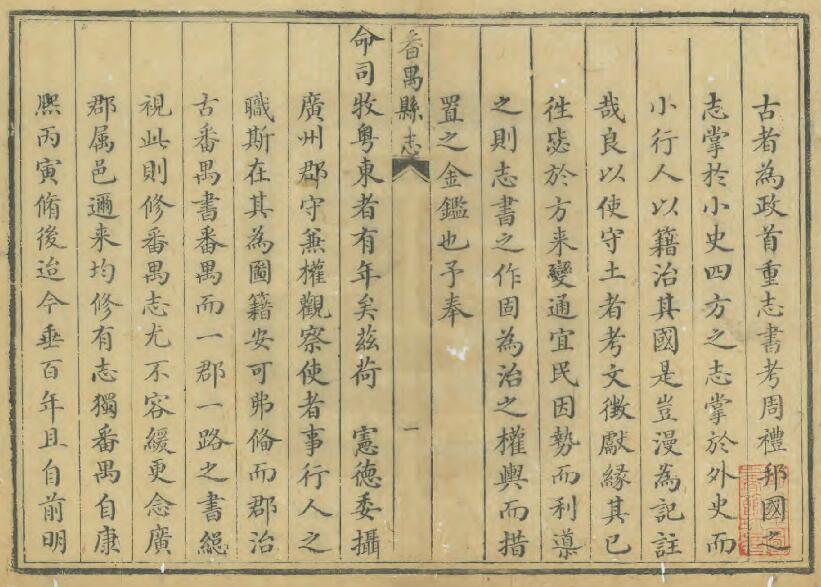 古者為政首重志書考周禮邦國之
志掌於小史四方之志掌於外史而
小行人以籍治其國是豈漫為記註
哉良以使守土者考文徵獻緣其已
徃毖於方来變通宜民因勢而利導
之則志書之作固為治之權輿而措
置之金鑑也予奉
番禺縣志
一
命司牧粤東者有年矣茲荷 憲德委攝
廣州郡守兼權觀察使者事行人之
職斯在其為圖籍安可弗脩而郡治
古番禺書番禺而一郡一路之書綐
視此則修番禺志尤不容緩更念廣
郡属邑邇来均修有志獨番禺自康
熙丙寅脩後迨今垂百年且自前明